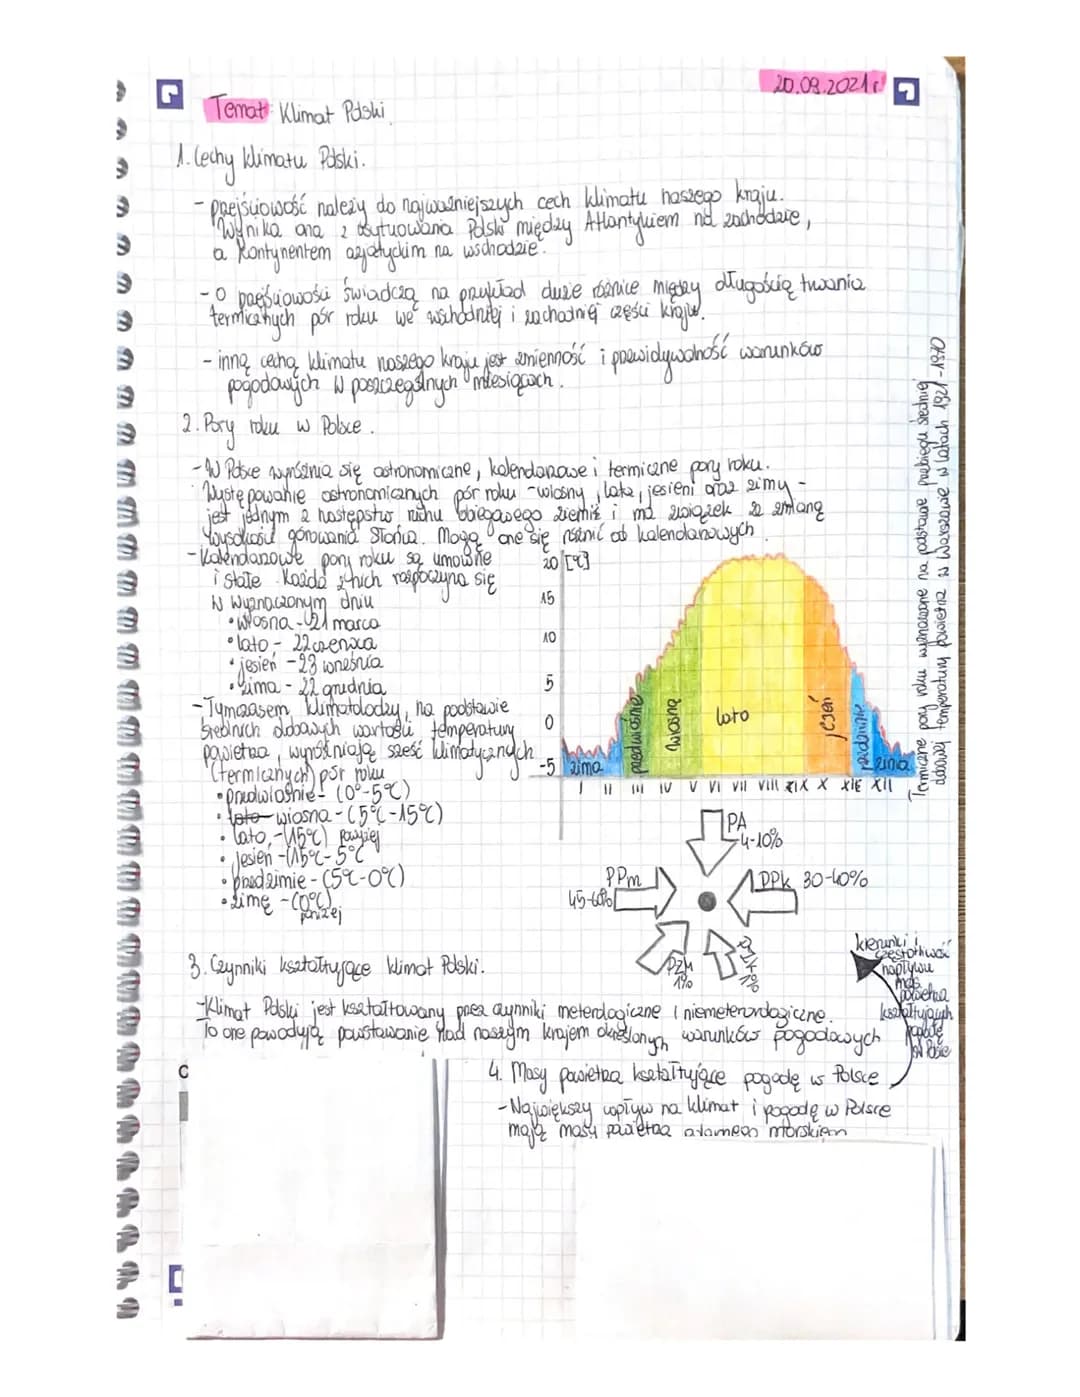 20.09.2021r.
Temat: Klimat Polski.
1. Cechy klimatu Polski.
- przejściowość należy do najważniejszych cech klimatu naszego kraju.
Wynika ona z usytuowania Polski między Atlantykiem na zachodzie,
a kontynentem azjatyckim na wschodzie.
- O przejściowości świadczą na przykład duże różnice między długością trwania
termicznych pór roku we wschodniej i zachodniej części kraju.
- inną cechą klimatu naszego kraju jest zmienność i przewidywalność warunków
pogodowych w poszczególnych miesiącach.
2. Pory roku w Polsce.
- W Polsce wyróżnia się astronomiczne, kalendarzowe i termiczne pory roku.
Występowanie astronomicznych pór roku - wiosny, lata, jesieni oraz zimy -
jest jednym z następstw ruchu obiegowego ziemi i ma związek ze zmianą
wysokości górowania Słońca. Mogą one się różnić od kalendarzowych.
- Kalendarzowe pory roku są umowne
i stałe. Każda z nich rozpoczyna się
w wyznaczonym dniu
• wiosna - 21 marca
• lato - 22 czerwca
• jesień - 23 września
• zima - 22 grudnia
- Tymczasem klimatolodzy, na podstawie
średnich dobowych wartości temperatury
powietrza, wyróżniają sześć klimatycznych
(termicznych) pór roku
• przedwiośnie - (0°-5℃)
• lato wiosna - (5℃-15℃)
• lato, - (15℃) powyżej
• jesień - (15℃-5℃
• przedzimie - (5℃-0℃)
• zimę - (0℃)
poniżej
20 [℃]
15
10
5
0
-5
zima
przedwiośnie
wiosna
lato
jesień
przedzimie
zima
I II III IV V VI VII VIII IX X XI XII
Termiczne pory roku wyznaczone na podstawie przebiegu średniej
dobowej temperatury powietrza w Warszawie w latach 1921-1970
PA
4-10%
PPm
45-60%
PPk 30-40%
PZm
1%
kierunki i
częstotliwość
napływu
mas
powietrza
kształtujących
pogodę
w Polsce
3. Czynniki kształtujące klimat Polski.
- Klimat Polski jest kształtowany przez czynniki meterologiczne i niemeterorologiczne.
To one powodują powstawanie nad naszym krajem określonych warunków pogodowych
4. Masy powietrza kształtujące pogodę w Polsce
- Największy wpływ na klimat i pogodę w Polsce
mają masy powietrza